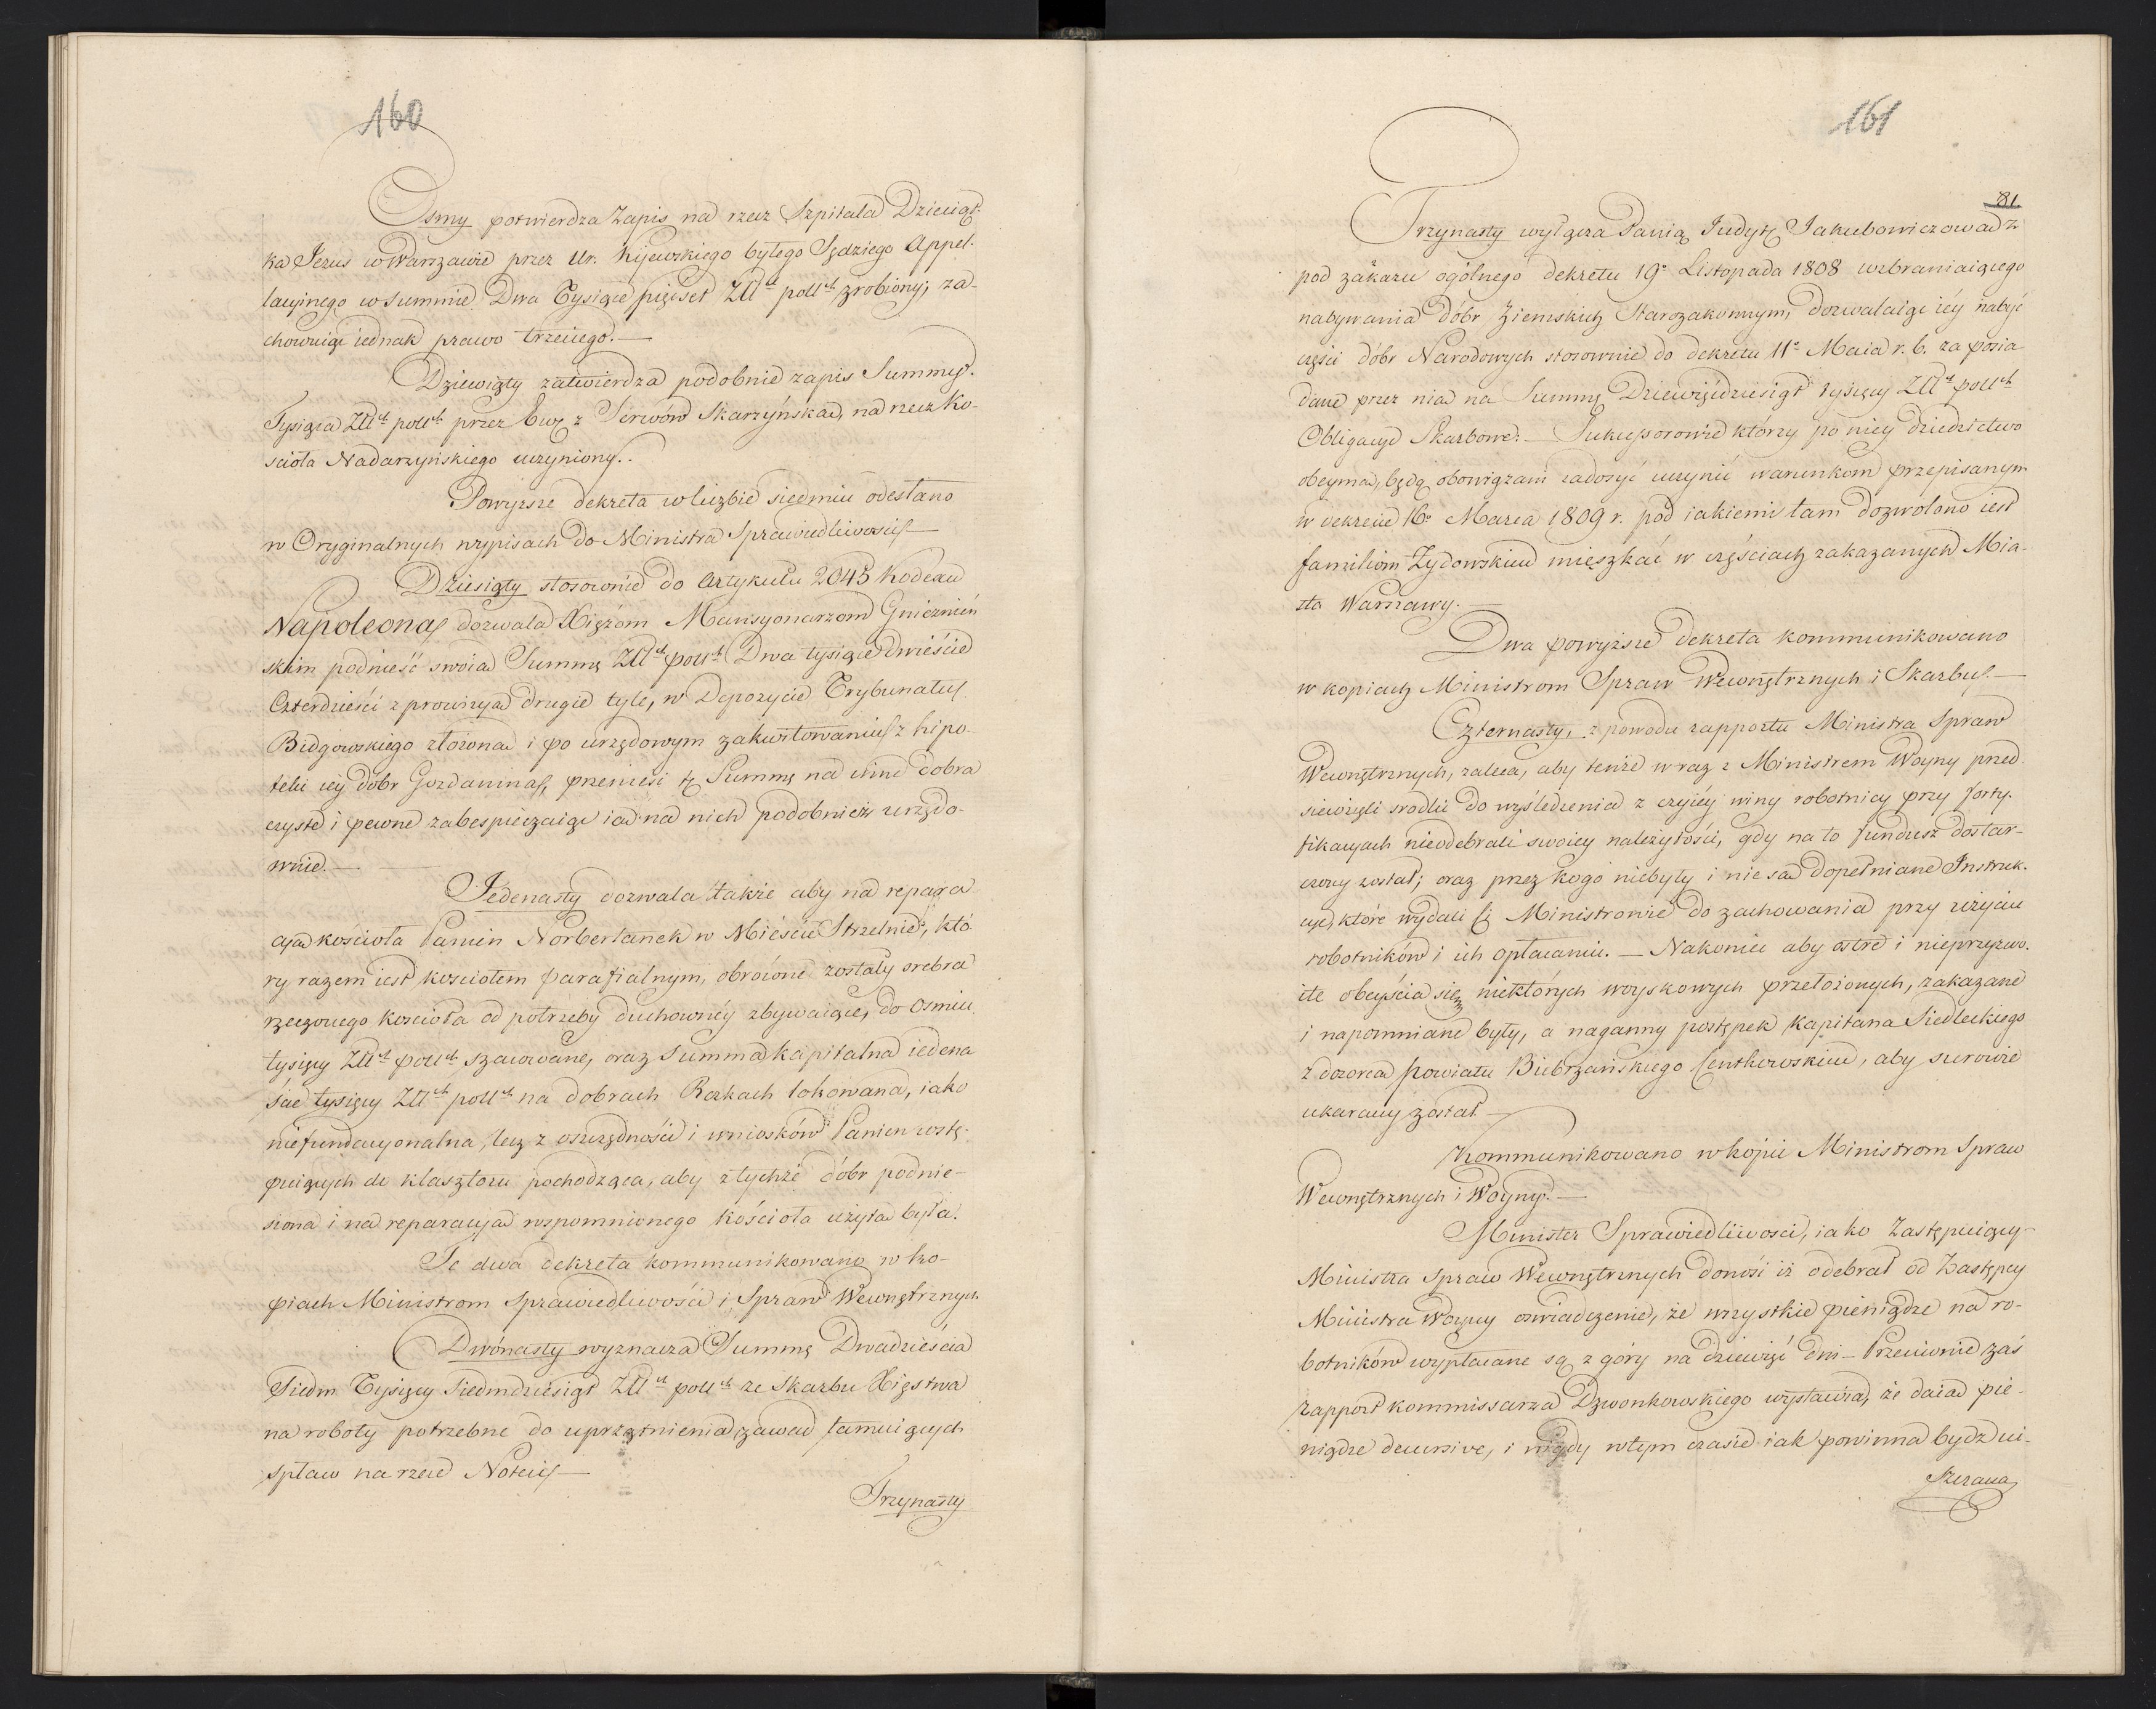 160
Osmy potwierdza Zapis na rzecz Szpitala Dzieciąt-
ka Jezus w Warszawie przez Ur. Kijewskiego byłego Sędziego Appel-
lacyinego w summie Dwa Tysiące pięćset Złł. poll. zrobiony, za-
chowuiąc iednak prawo trzeciego.—
Dziewiąty zatwierdza podobnie zapis Summy
Tysiąca Złł. poll. przez Ewę z Serwów Skarzyńską, na rzecz Ko-
scioła Nadarzyńskiego uczyniony.
Powyższe dekreta w liczbie siedmiu odesłano
w Oryginalnych wypisach do Ministra Sprawiedliwości—
Dziesiąty stosownie do Artykułu 2045 Kodexu
Napoleona dozwala Xiężom Mansyonarzom Gnieznień
skim podnieść swoią Summę Złł. poll. Dwa tysiące dwieście
Czterdzieści z prowizyą drugie tyle, w Depozycie Trybunału
Bidgowskiego złożoną i po urzędowym zakwitowaniu z hipo-
teki iey dóbr Gozdanina, przenieśi tę Summę na inne dobra
czyste i pewne zabespieczaiąc ią na nich podobnież urzędo-
wnie.—
Jedenasty dozwala także aby na repara-
cyą kościoła Panien Norbertanek w Mieście Strzelnie, któ-
ry razem iest kościołem parafialnym, obrócone zostały srebra
rzeczonego kościoła od potrzeby duchownéy zbywaiące, do Osmiu
tysięcy Złł. poll. szacowane, oraz Summa kapitalna iedena
ście tysięcy Złł. poll. na dobrach Rzkach lokowana, iako
niefundacyonalna, lecz z oszczędności i wniosków Panien wstę-
puiących do klasztoru pochodząca, aby z tychże dóbr podnie-
siona i na reparacyą wspomnionego kościoła użyta była.
Te dwa dekreta kommunikowano w ko-
piach Ministrom Sprawiedliwości i Spraw Wewnętrznych
Dwónasty wyznacza Summę Dwadzieścia
Siedm Tysięcy Siedmdziesiąt Złł. poll. ze Skarbu Xięstwa
na roboty potrzebne do uprzątnienia zawad tamuiących
spław na rzece Noteci—
Trzynasty
161
81.
Trzynasty wyłącza Panią Judytę Jakubowiczową z
pod zakazu ogólnego dekretu 19o Listopada 1808 wzbraniaiącego
nabywania dóbr Ziemskich Starozakonnym, dozwalaiąc iéy nabyć
części dóbr Narodowych stosownie do dekretu 11o Maia r. b. za posia
dane przez nią na Summę Dziewięćdziesiąt tysięcy Złł. poll.
Obligacye Skarbowe.— Sukcessorowie którzy po niey dziedzictwo
obeymą, będą obowiązani zadosyć uczynić warunkom przepisanym
w dekrecie 16o Marca 1809 r. pod iakiemi tam dozwolono iest
familiom Żydowskim mieszkać w częściach zakazanych Mia-
sta Warszawy.—
Dwa powyższe dekreta kommunikowano
w kopiach Ministrom Spraw Wewnętrznych i Skarbu.—
Czternasty, z powodu rapportu Ministra Spraw
Wewnętrznych, zaleca, aby tenże wraz z Ministrem Woyny przed-
sięwzięli srodki do wyśledzenia z czyiéy winy robotnicy przy forty-
fikacyach nieodebrali swoiey należytości, gdy na to fundusz dostar-
czony został; oraz przez kogo niebyły i nie są dopełniane Instruk-
cye, które wydali ciż Ministrowie do zachowania przy użyciu
robotników i ich opłacaniu.— Nakoniec aby ostre i nieprzyzwo-
ite obeyścia się niektórych woyskowych przełożonych, zakazane
i napomniane były, a naganny postępek Kapitana Siedleckiego
z dozorcą powiatu Biebrzańskiego Centkowskim, aby surowie
ukarany został—
Kommunikowano w kopii Ministrom Spraw
Wewnętrznych i Woyny.—
Minister Sprawiedliwości, iako Zastępuiący
Ministra Spraw Wewnętrznych donosi iż odebrał od Zastępcy
Ministra Woyny oswiadczenie, że wszystkie pieniądze na ro-
botników wypłacane są z góry na dziewięć dni— Przeciwnie zaś
rapport kommissarza Dzwonkowskiego wystawia, że daią pie-
niądze decursive, i nigdy w tym czasie iak powinna bydź ui-
szczana